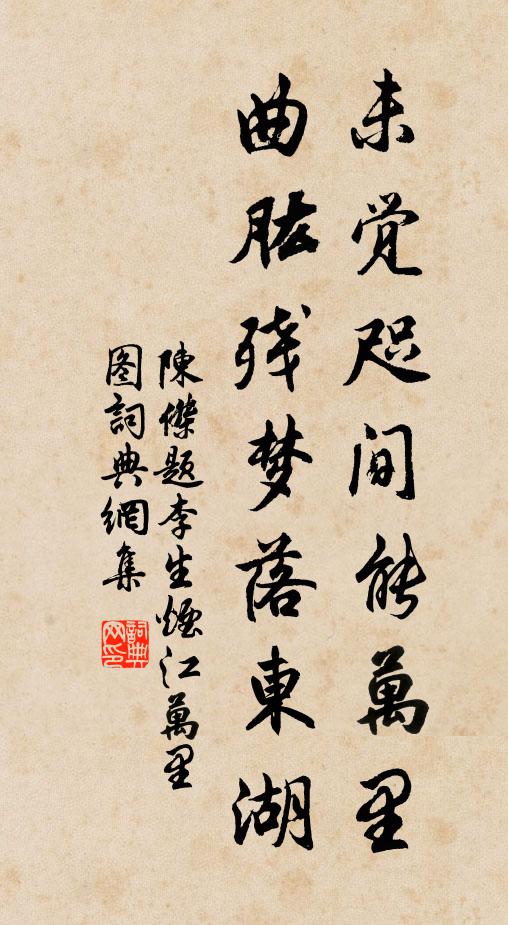 未觉咫间能萬里
曲肱残梦落東湖
陳傑题李生煙江萬里
图詞典網集
詞典网印